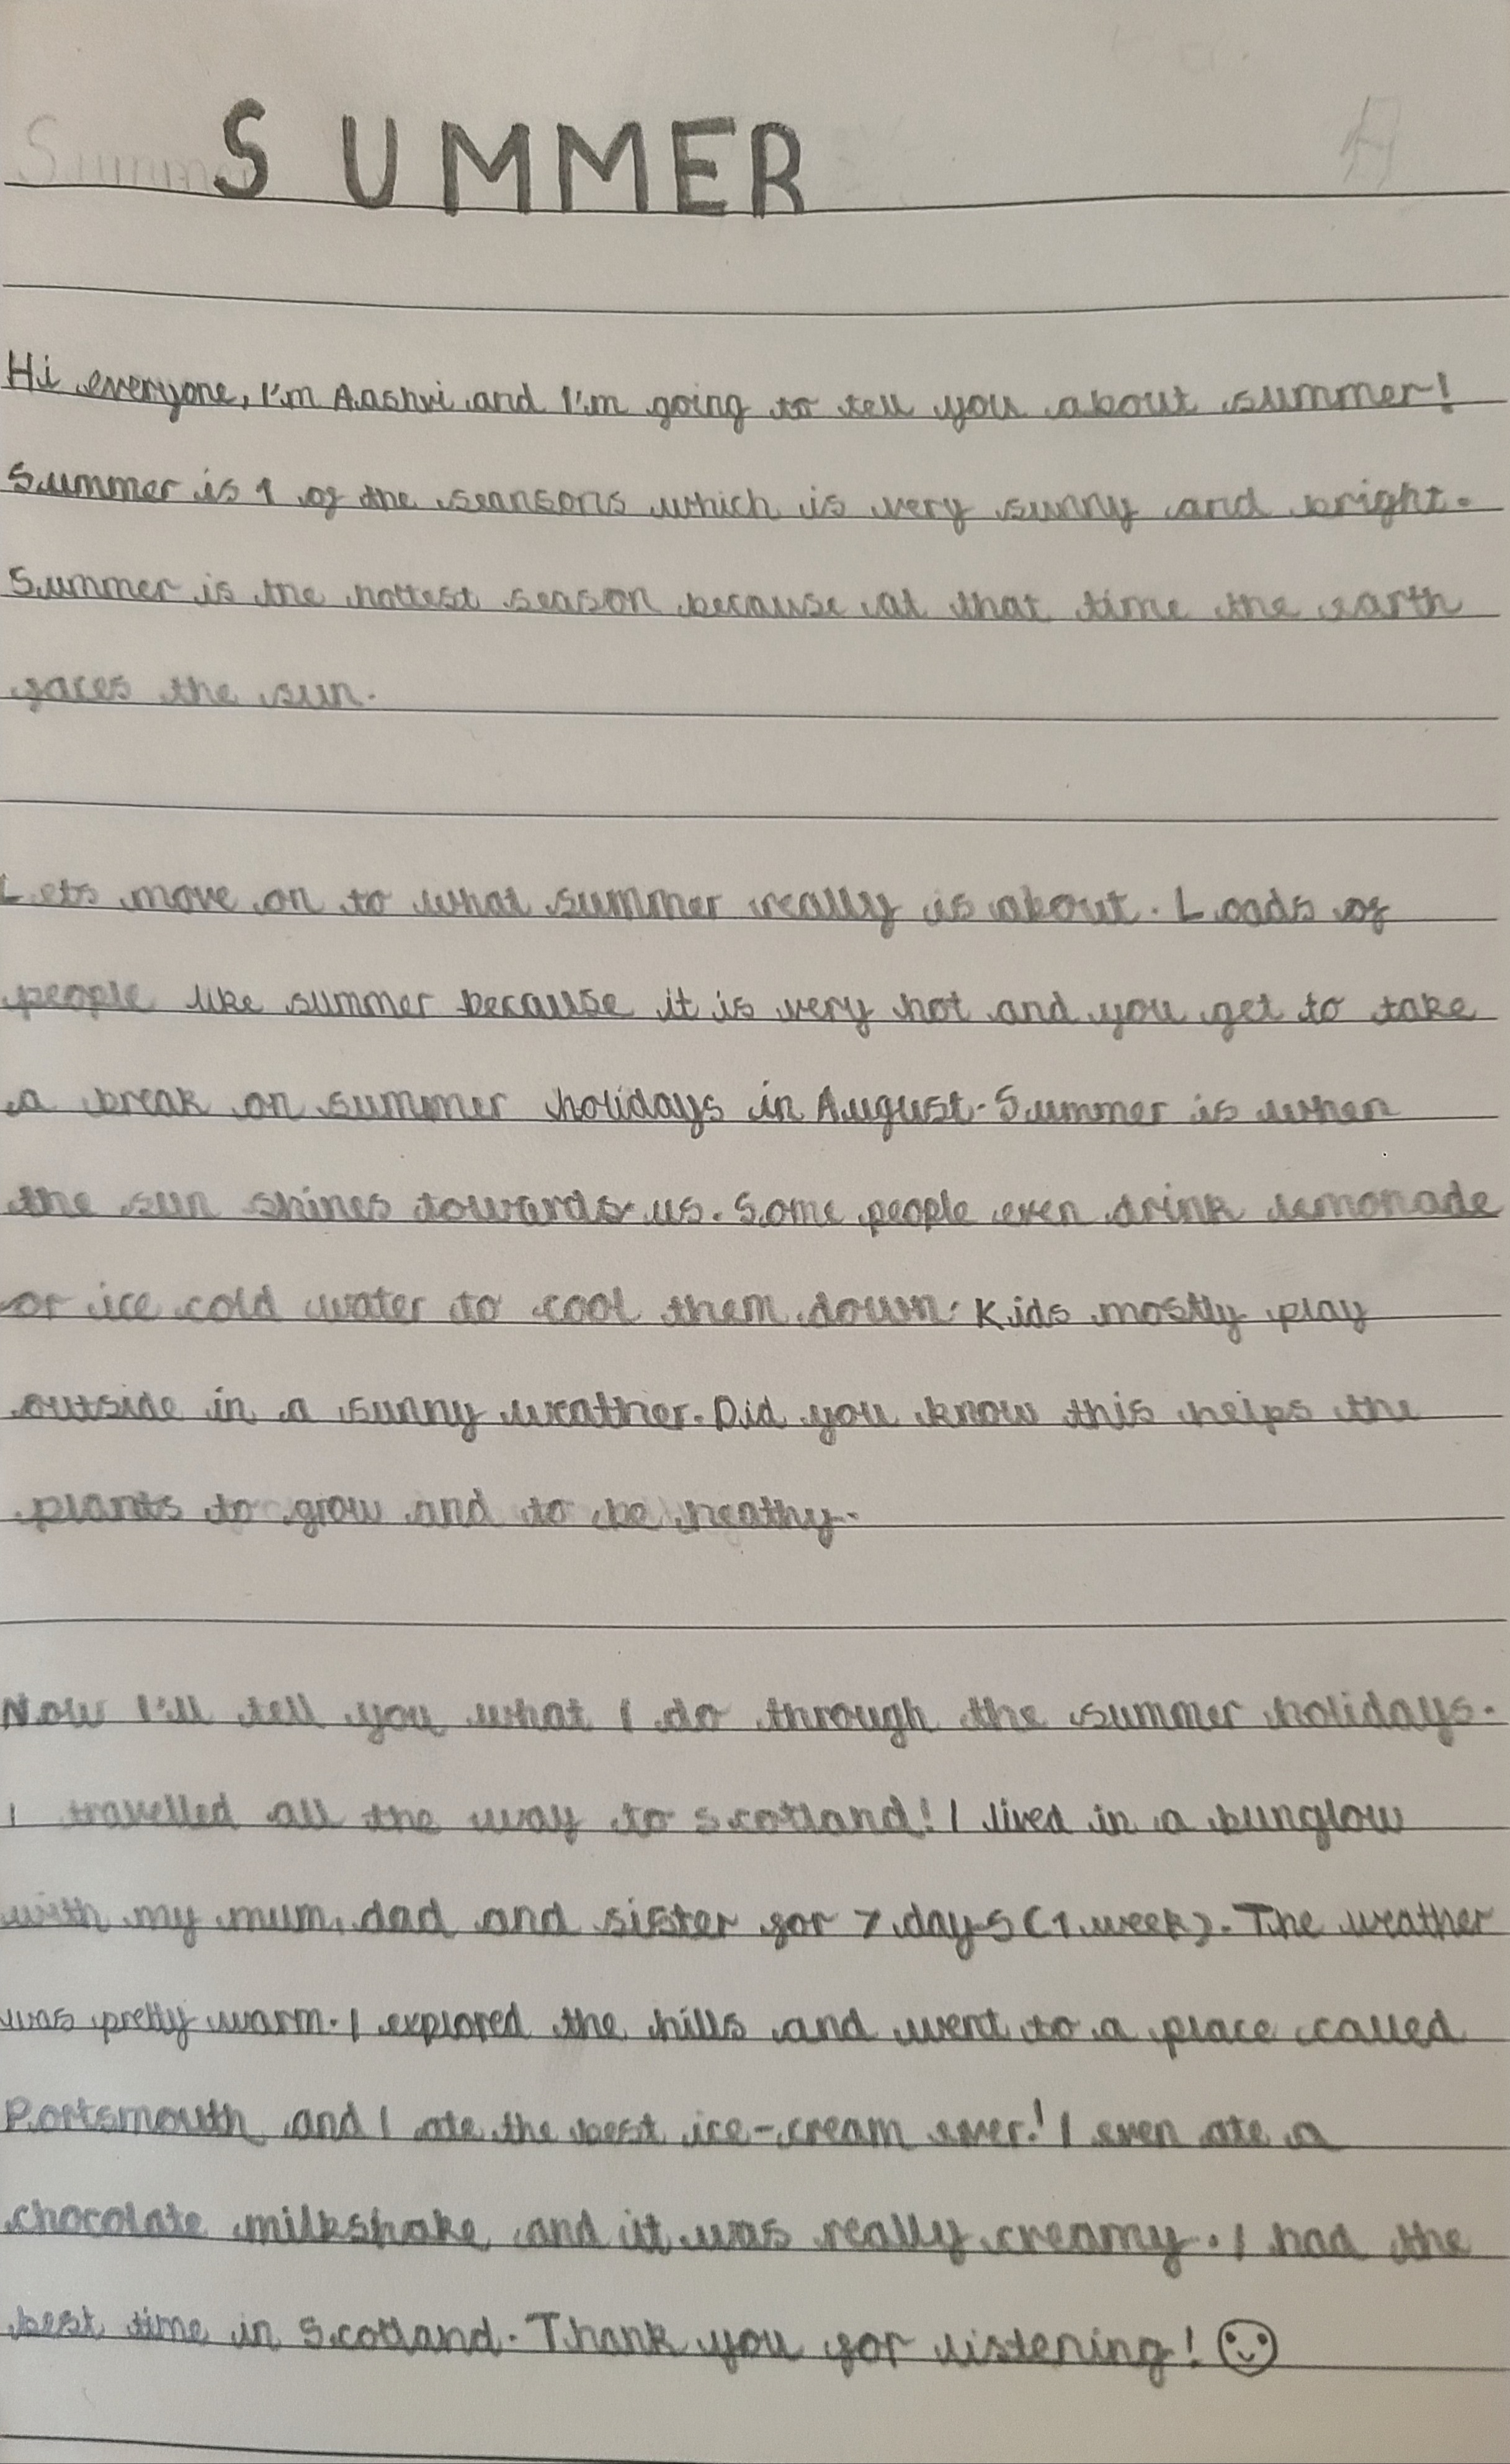 SUMMER
Hi everyone, I'm Aashvi and I'm going to tell you about summer!
Summer is 1 of the seansons which is very sunny and bright.
Summer is the hottest season because at that time the earth
faces the sun.
Lets move on to what summer really is about. Loads of
people like summer because it is very hot and you get to take
a break on summer holidays in August. Summer is when
the sun shines towards us. Some people even drink lemonade
or ice cold water to cool them down. Kids mostly play
outside in a sunny weather. Did you know this helps the
plants to grow and to be heathy.
Now I'll tell you what I do through the summer holidays.
I travelled all the way to Scotland! I lived in a bunglow
with my mum, dad and sister for 7 days (1 week). The weather
was pretty warm. I explored the hills and went to a place called
Portsmouth and I ate the best ice-cream ever! I even ate a
chocolate milkshake and it was really creamy. I had the
best time in Scotland. Thank you for listening! ☺